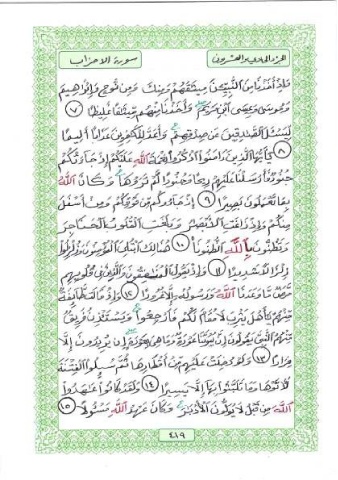 الجزء الحادي والعشرون
سورة الاحزاب
وَإِذْ أَخَذْنَا مِنَ النَّبِيِّنَ مِيثَاقَهُمْ وَمِنكَ وَمِن نُّوحٍ وَإِبْرَاهِيمَ
وَمُوسَى وَعِيسَى ابْنِ مَرْيَمَ وَأَخَذْنَا مِنْهُم مِّيثَاقًا غَلِيظًا ٧
لِيَسْأَلَ الصَّادِقِينَ عَن صِدْقِهِمْ وَأَعَدَّ لِلْكَافِرِينَ عَذَابًا أَلِيمًا
٨ يَا أَيُّهَا الَّذِينَ آمَنُوا اذْكُرُوا نِعْمَةَ اللَّهِ عَلَيْكُمْ إِذْ جَاءَتْكُمْ
جُنُودٌ فَأَرْسَلْنَا عَلَيْهِمْ رِيحًا وَجُنُودًا لَّمْ تَرَوْهَا وَكَانَ اللَّهُ
بِمَا تَعْمَلُونَ بَصِيرًا ٩ إِذْ جَاءُوكُم مِّن فَوْقِكُمْ وَمِنْ أَسْفَلَ
مِنكُمْ وَإِذْ زَاغَتِ الْأَبْصَارُ وَبَلَغَتِ الْقُلُوبُ الْحَنَاجِرَ
وَتَظُنُّونَ بِاللَّهِ الظُّنُونَا ١٠ هُنَالِكَ ابْتُلِيَ الْمُؤْمِنُونَ وَزُلْزِلُوا
زِلْزَالًا شَدِيدًا ١١ وَإِذْ يَقُولُ الْمُنَافِقُونَ وَالَّذِينَ فِي قُلُوبِهِم
مَّرَضٌ مَّا وَعَدَنَا اللَّهُ وَرَسُولُهُ إِلَّا غُرُورًا ١٢ وَإِذْ قَالَت طَّائِفَةٌ
مِّنْهُمْ يَا أَهْلَ يَثْرِبَ لَا مُقَامَ لَكُمْ فَارْجِعُوا وَيَسْتَأْذِنُ فَرِيقٌ
مِّنْهُمُ النَّبِيَّ يَقُولُونَ إِنَّ بُيُوتَنَا عَوْرَةٌ وَمَا هِيَ بِعَوْرَةٍ إِن يُرِيدُونَ إِلَّا
فِرَارًا ١٣ وَلَوْ دُخِلَتْ عَلَيْهِم مِّنْ أَقْطَارِهَا ثُمَّ سُئِلُوا الْفِتْنَةَ
لَآتَوْهَا وَمَا تَلَبَّثُوا بِهَا إِلَّا يَسِيرًا ١٤ وَلَقَدْ كَانُوا عَاهَدُوا
اللَّهَ مِن قَبْلُ لَا يُوَلُّونَ الْأَدْبَارَ وَكَانَ عَهْدُ اللَّهِ مَسْئُولًا ١٥
٤١٩